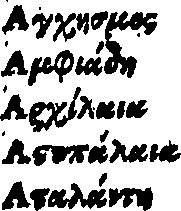 Αγχησμος
Αμφιάδη
Αρχίλαια
Ατυπάλαια
Αταλάντη